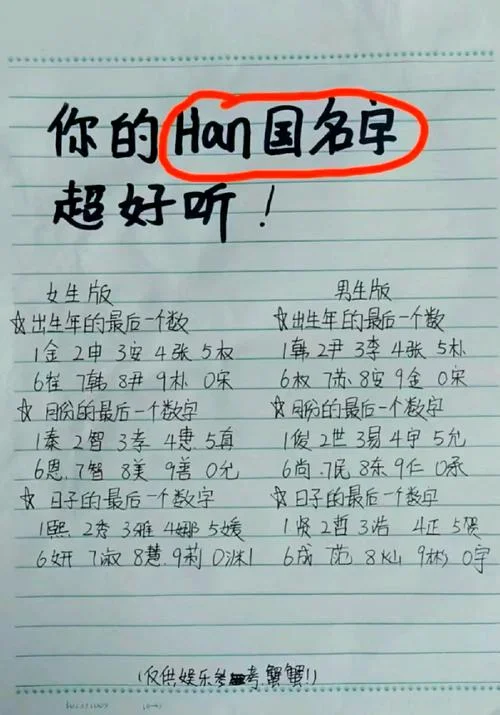 你的Han国名字
超好听!
女生版
☆出生年的最后一个数
1金 2申 3安 4张 5权
6崔 7韩 8尹 9朴 0宋
☆月份的最后一个数字
1秦 2智 3孝 4惠 5真
6恩 7智 8美 9善 0允
☆日子的最后一个数字
1熙 2秀 3雅 4娜 5媛
6妍 7淑 8慧 9莉 0渊
男生版
☆出生年的最后一个数
1韩 2尹 3李 4张 5朴
6权 8安 9金 0宋
☆月份的最后一个数字
1俊 2世 3易 4宇 5允
6尚 7民 8东 9仁 0承
☆日子的最后一个数字
1贤 2哲 3浩 4正 5贺
6成 范 8灿 9彬 0宇
(仅供娱乐参考,蟹蟹!)